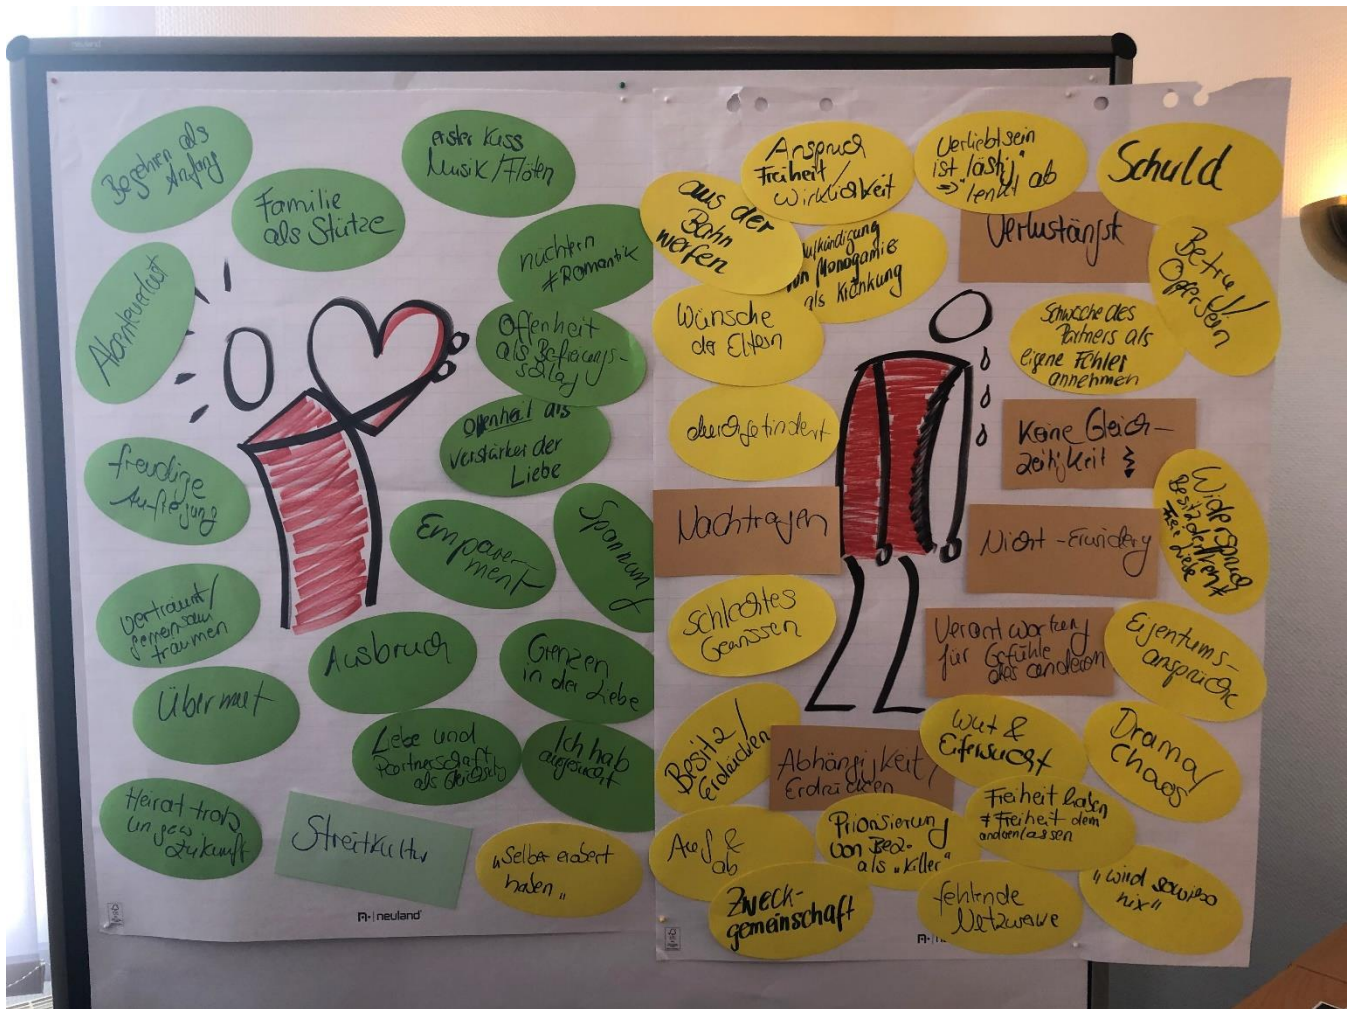 Begehren als
Anfang
erster Kuss
Musik/Flöten
Familie
als Stütze
nüchtern
≠ Romantik
Abenteuerlust
Offenheit
als Befreiungs-
schlag
Offenheit als
Verstärker der
Liebe
freudige
Aufregung
Empower-
ment
Spannung
verträumt/
gemeinsam
träumen
Ausbruch
Grenzen
in der Liebe
Übermut
Liebe und
Partnerschaft
als
Ich hab
ausgesucht
Heirat trotz
ungew
Zukunft
Streitkultur
"Selber erobert
haben"
neuland
Anspruch
Freiheit/
Wirklichkeit
Verliebtsein
ist "lästig"
=> lenkt ab
Schuld
aus der
Bahn
werfen
Aufkündigung
von Monogamie
als Kränkung
Verlustangst
Betrug/
Opfersein
Wünsche
der Eltern
Schwäche des
Partners als
eigene Fehler
annehmen
durchgetindert
Keine Gleich-
zeitigkeit
Nachtragen
Nicht-Erwiderg
Widerspruch
Besitzdenken
Freie Liebe
Schlechtes
Gewissen
Verantwortung
für Gefühle
des anderen
Eigentums-
ansprüche
Besitz/
Erdrücken
Abhängigkeit/
Erdrücken
Wut &
Eifersucht
Drama/
Chaos
Auf &
ab
Priorisierung
von Bez.
als "Killer"
Freiheit haben
≠ Freiheit dem
anderen lassen
Zweck-
gemeinschaft
fehlende
Netzwerke
"wird sowieso
nix"